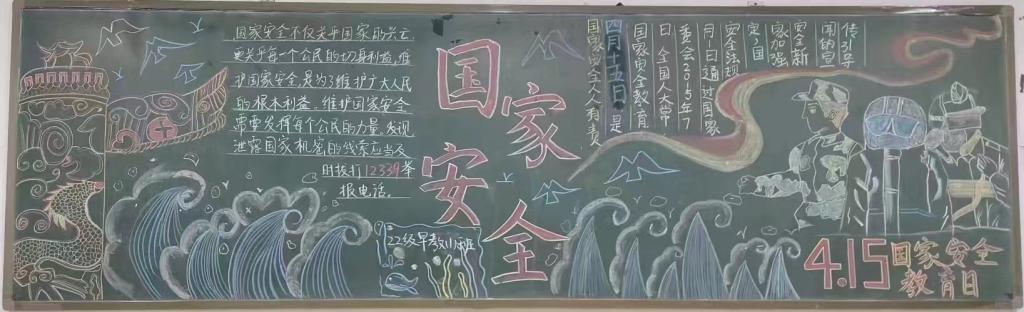 国家安全不仅关乎国家的兴亡,
更关乎每一个公民的切身利益,维
护国家安全是为了维护广大人民
的根本利益,维护国家安全
需要发挥每个公民的力量,发现
泄露国家机密的线索应当及
时拨打12339举
报电话。
国家安全
22级早教(1)班
国家安全人人有责
四月十五日是
国家安全教育
日 全国人大常
委会2015年7
月1日通过国家
安全法规
定,国
家加强
安全新
闻的宣
传引导
4.15国家安全
教育日